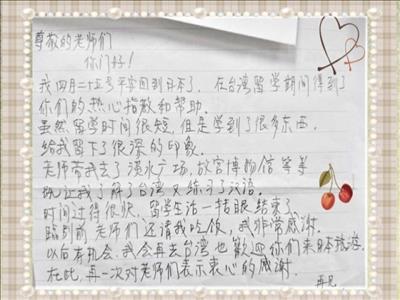 尊敬的老师们
你们好!
我四月二十五号平安回到日本了. 在台湾留学期间得到了
你们的热心指教和帮助.
虽然留学时间很短, 但是学到了很多东西.
给我留下了很深的印象.
老师带我去了淡水广场, 故宫博物馆等等
既让我了解了台湾又练习了汉语.
时间过得很快, 留学生活一眨眼结束了.
临别前老师们还请我吃饭, 我非常感谢.
以后有机会, 我会再去台湾也歡迎你们来日本旅游.
在此, 再一次对老师们表示衷心的感谢.
再见